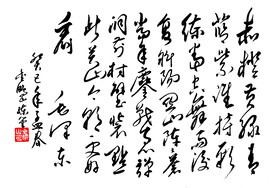 赤橙黄绿青
蓝紫谁持彩
练当空舞雨后
复斜阳关山阵阵苍
当年鏖战急弹
洞前村壁装点
此关山今朝更好
看 毛泽东
癸巳年孟春